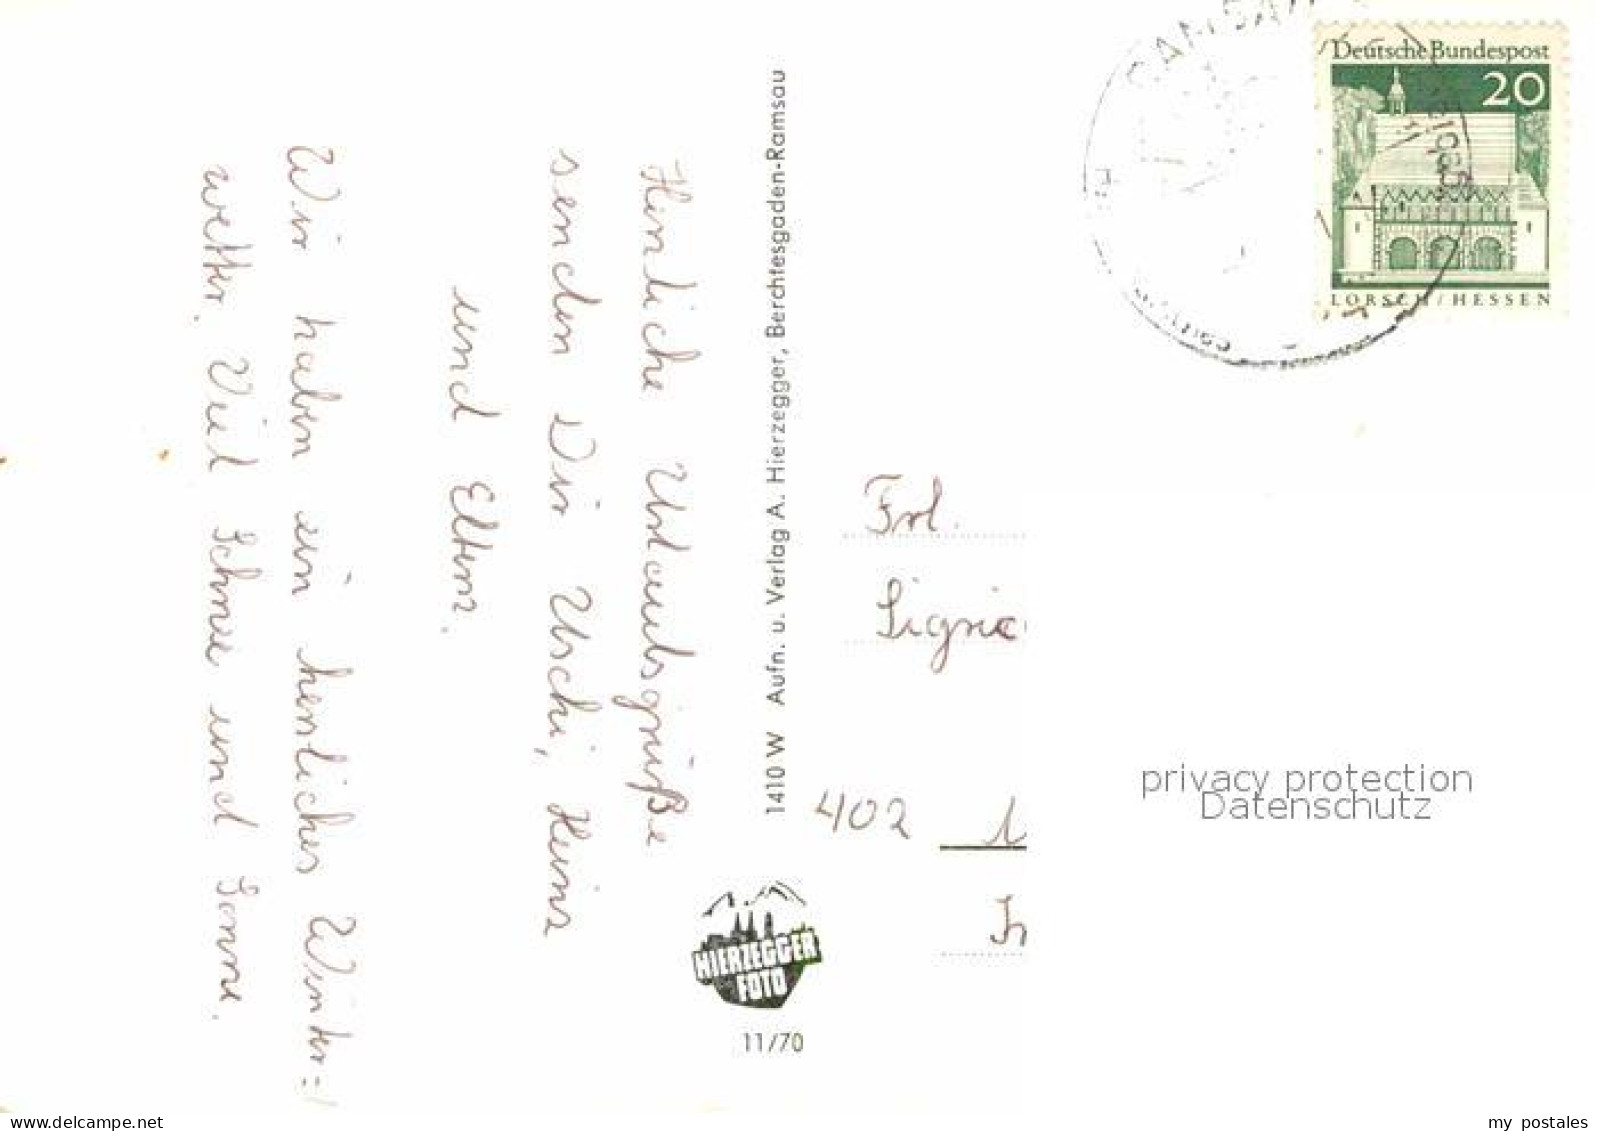 Herzliche Urlaubsgrüße
senden Dir Uschi, Heinz
und Eltern.
Wir haben ein herrliches Winter=
wetter. Viel Schnee und Sonne.
1410 W Aufn. u. Verlag A. Hierzegger, Berchtesgaden-Ramsau
HIERZEGGER
FOTO
11/70
Deutsche Bundespost
20
LORSCH/HESSEN
Frl.
402
privacy protection
Datenschutz
www.delcampe.net
my_postales